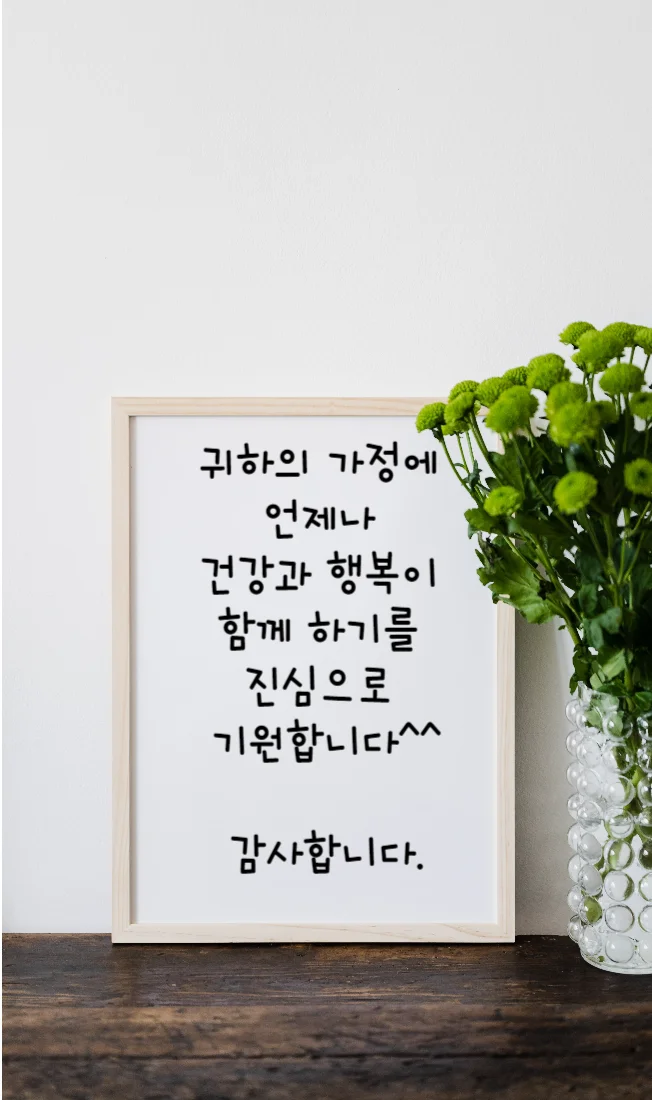 귀하의 가정에
언제나
건강과 행복이
함께 하기를
진심으로
기원합니다^^
감사합니다.